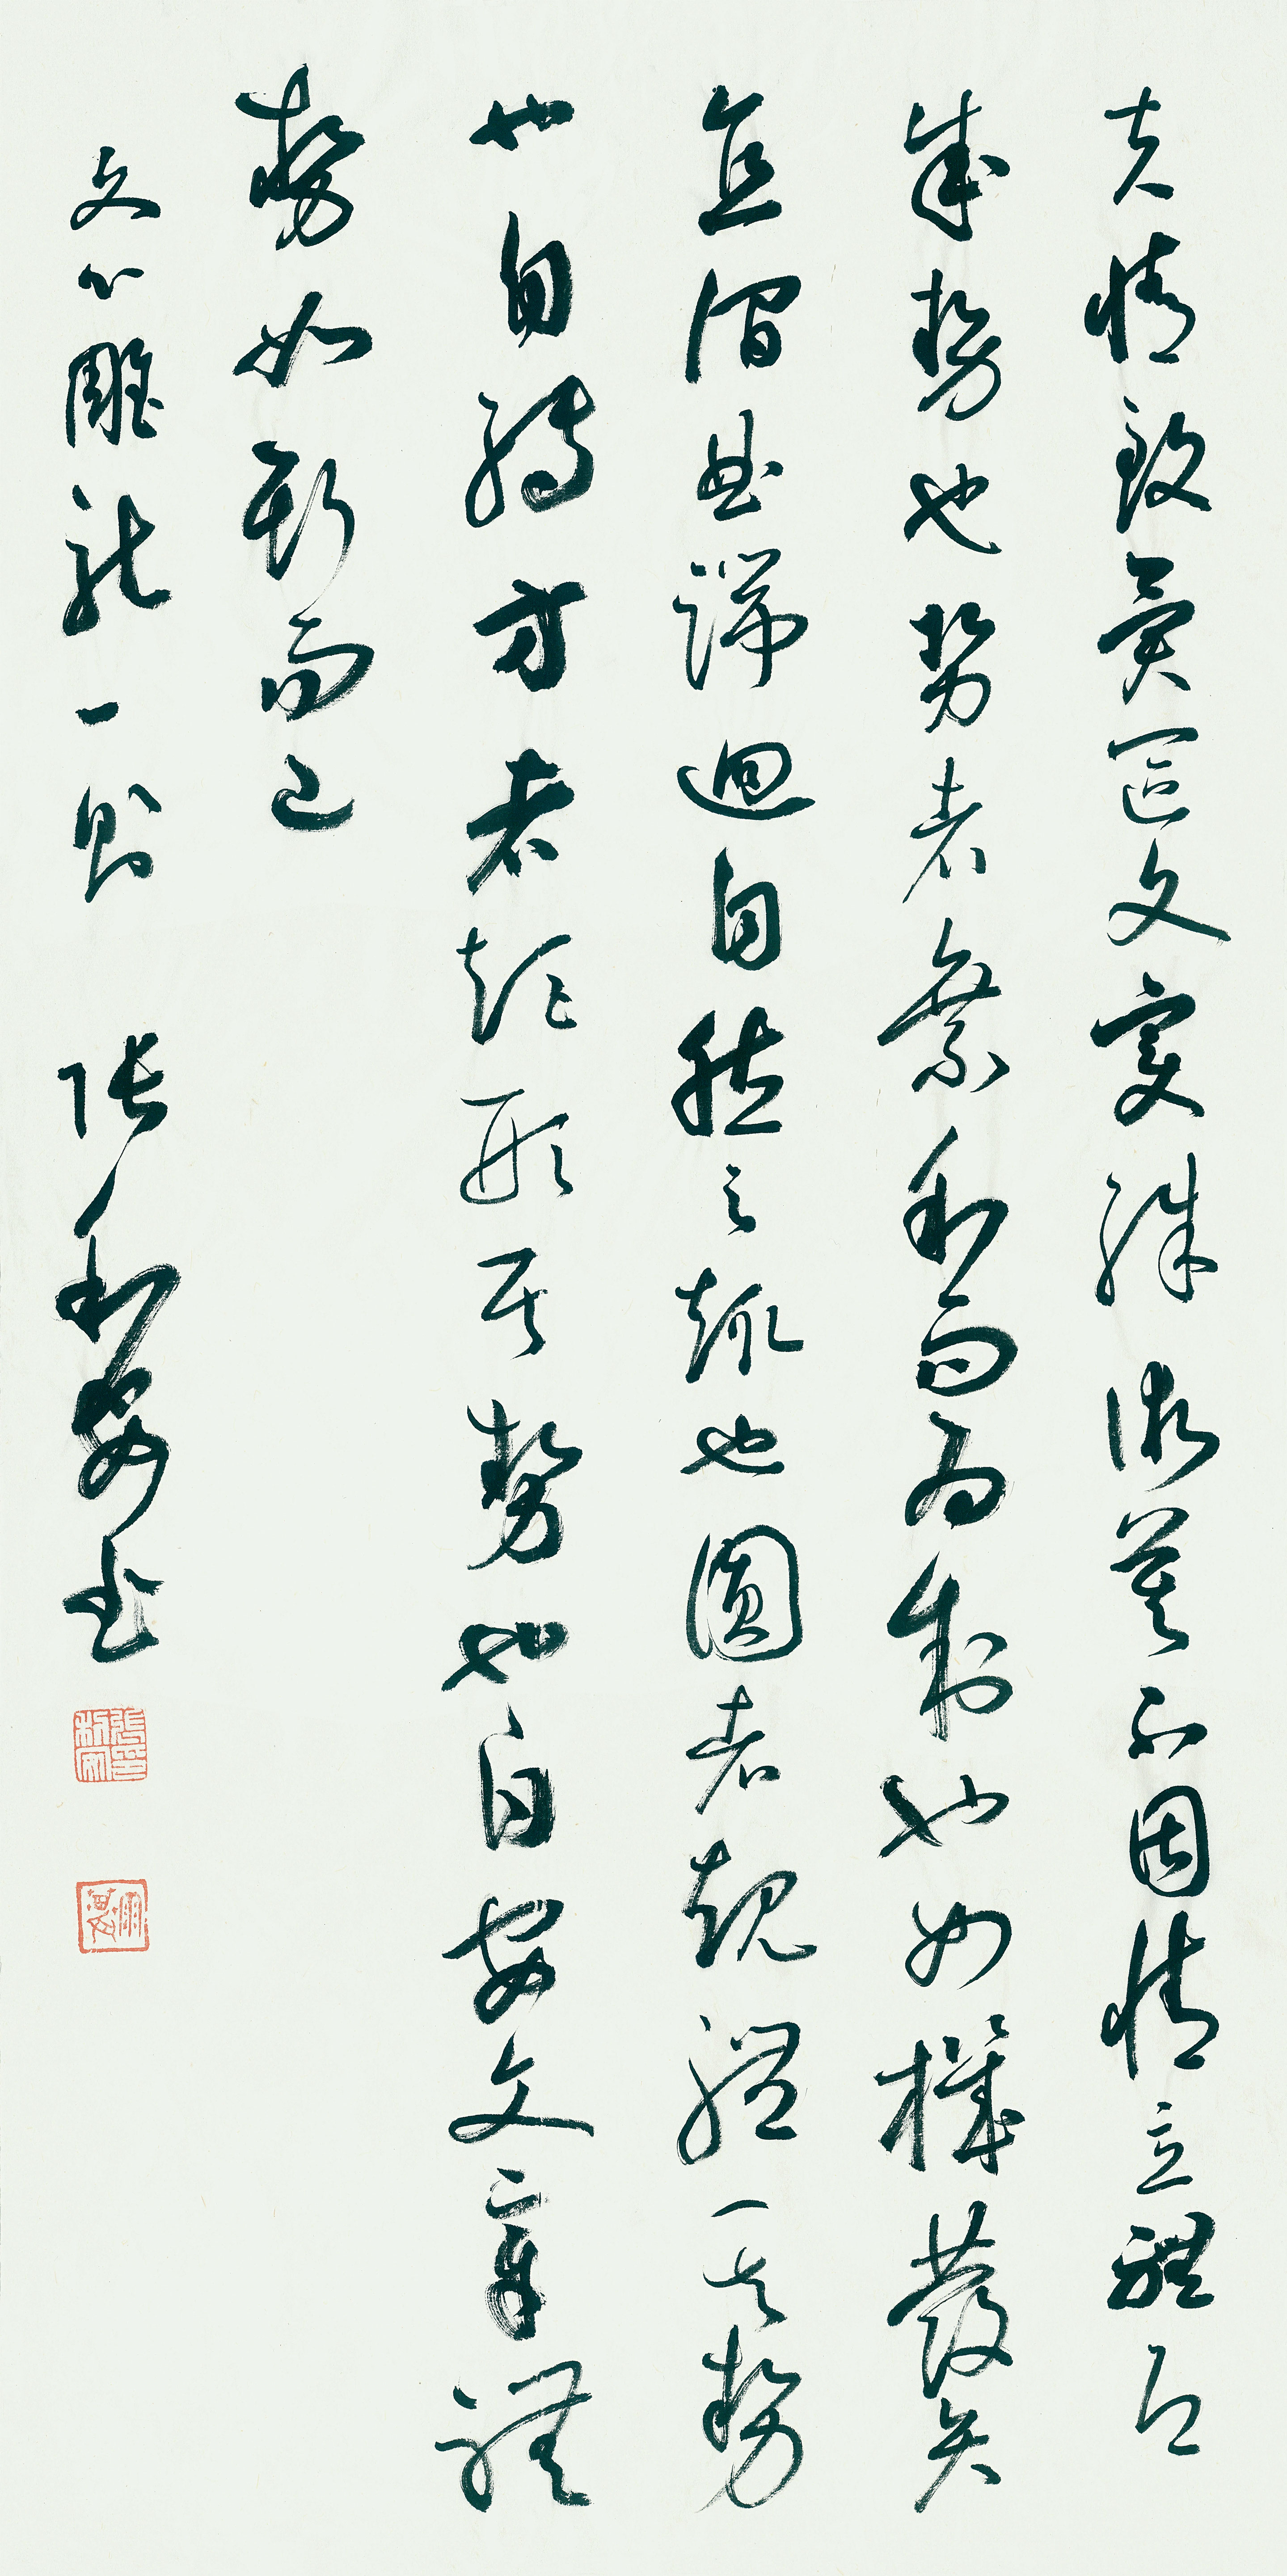 夫情致異區文變殊術莫不因情立體即
成勢也勢者乘利而為制也如機發矢
直澗曲湍迴自然之趣也圓者規體其勢
也自轉方者矩形其勢也自安文章體
勢如斯而已
文心雕龍一則 張利安書